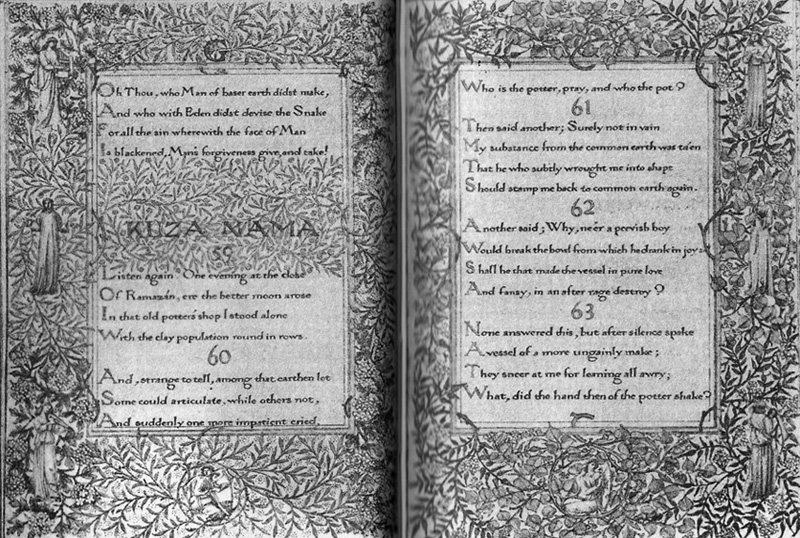 Oh Thou, who Man of baser earth didst make,
And who with Eden didst devise the Snake
For all the sin wherewith the face of Man
Is blackened, Man's forgiveness give, and take!
KUZA NAMA
59
Listen again. One evening at the close
Of Ramazán, ere the better moon arose
In that old potter's shop I stood alone
With the clay population round in rows.
60
And, strange to tell, among that earthen lot
Some could articulate, while others not,
And suddenly one more impatient cried,
Who is the potter, pray, and who the pot?
61
Then said another; Surely not in vain
My substance from the common earth was ta'en
That he who subtly wrought me into shape
Should stamp me back to common earth again.
62
Another said; Why, ne'er a pervish boy
Would break the bowl from which he drank in joy:
Shall he that made the vessel in pure love
And fansy, in an after rage destroy?
63
None answered this, but after silence spake
A vessel of a more ungainly make;
They sneer at me for leaning all awry;
What, did the hand then of the potter shake?